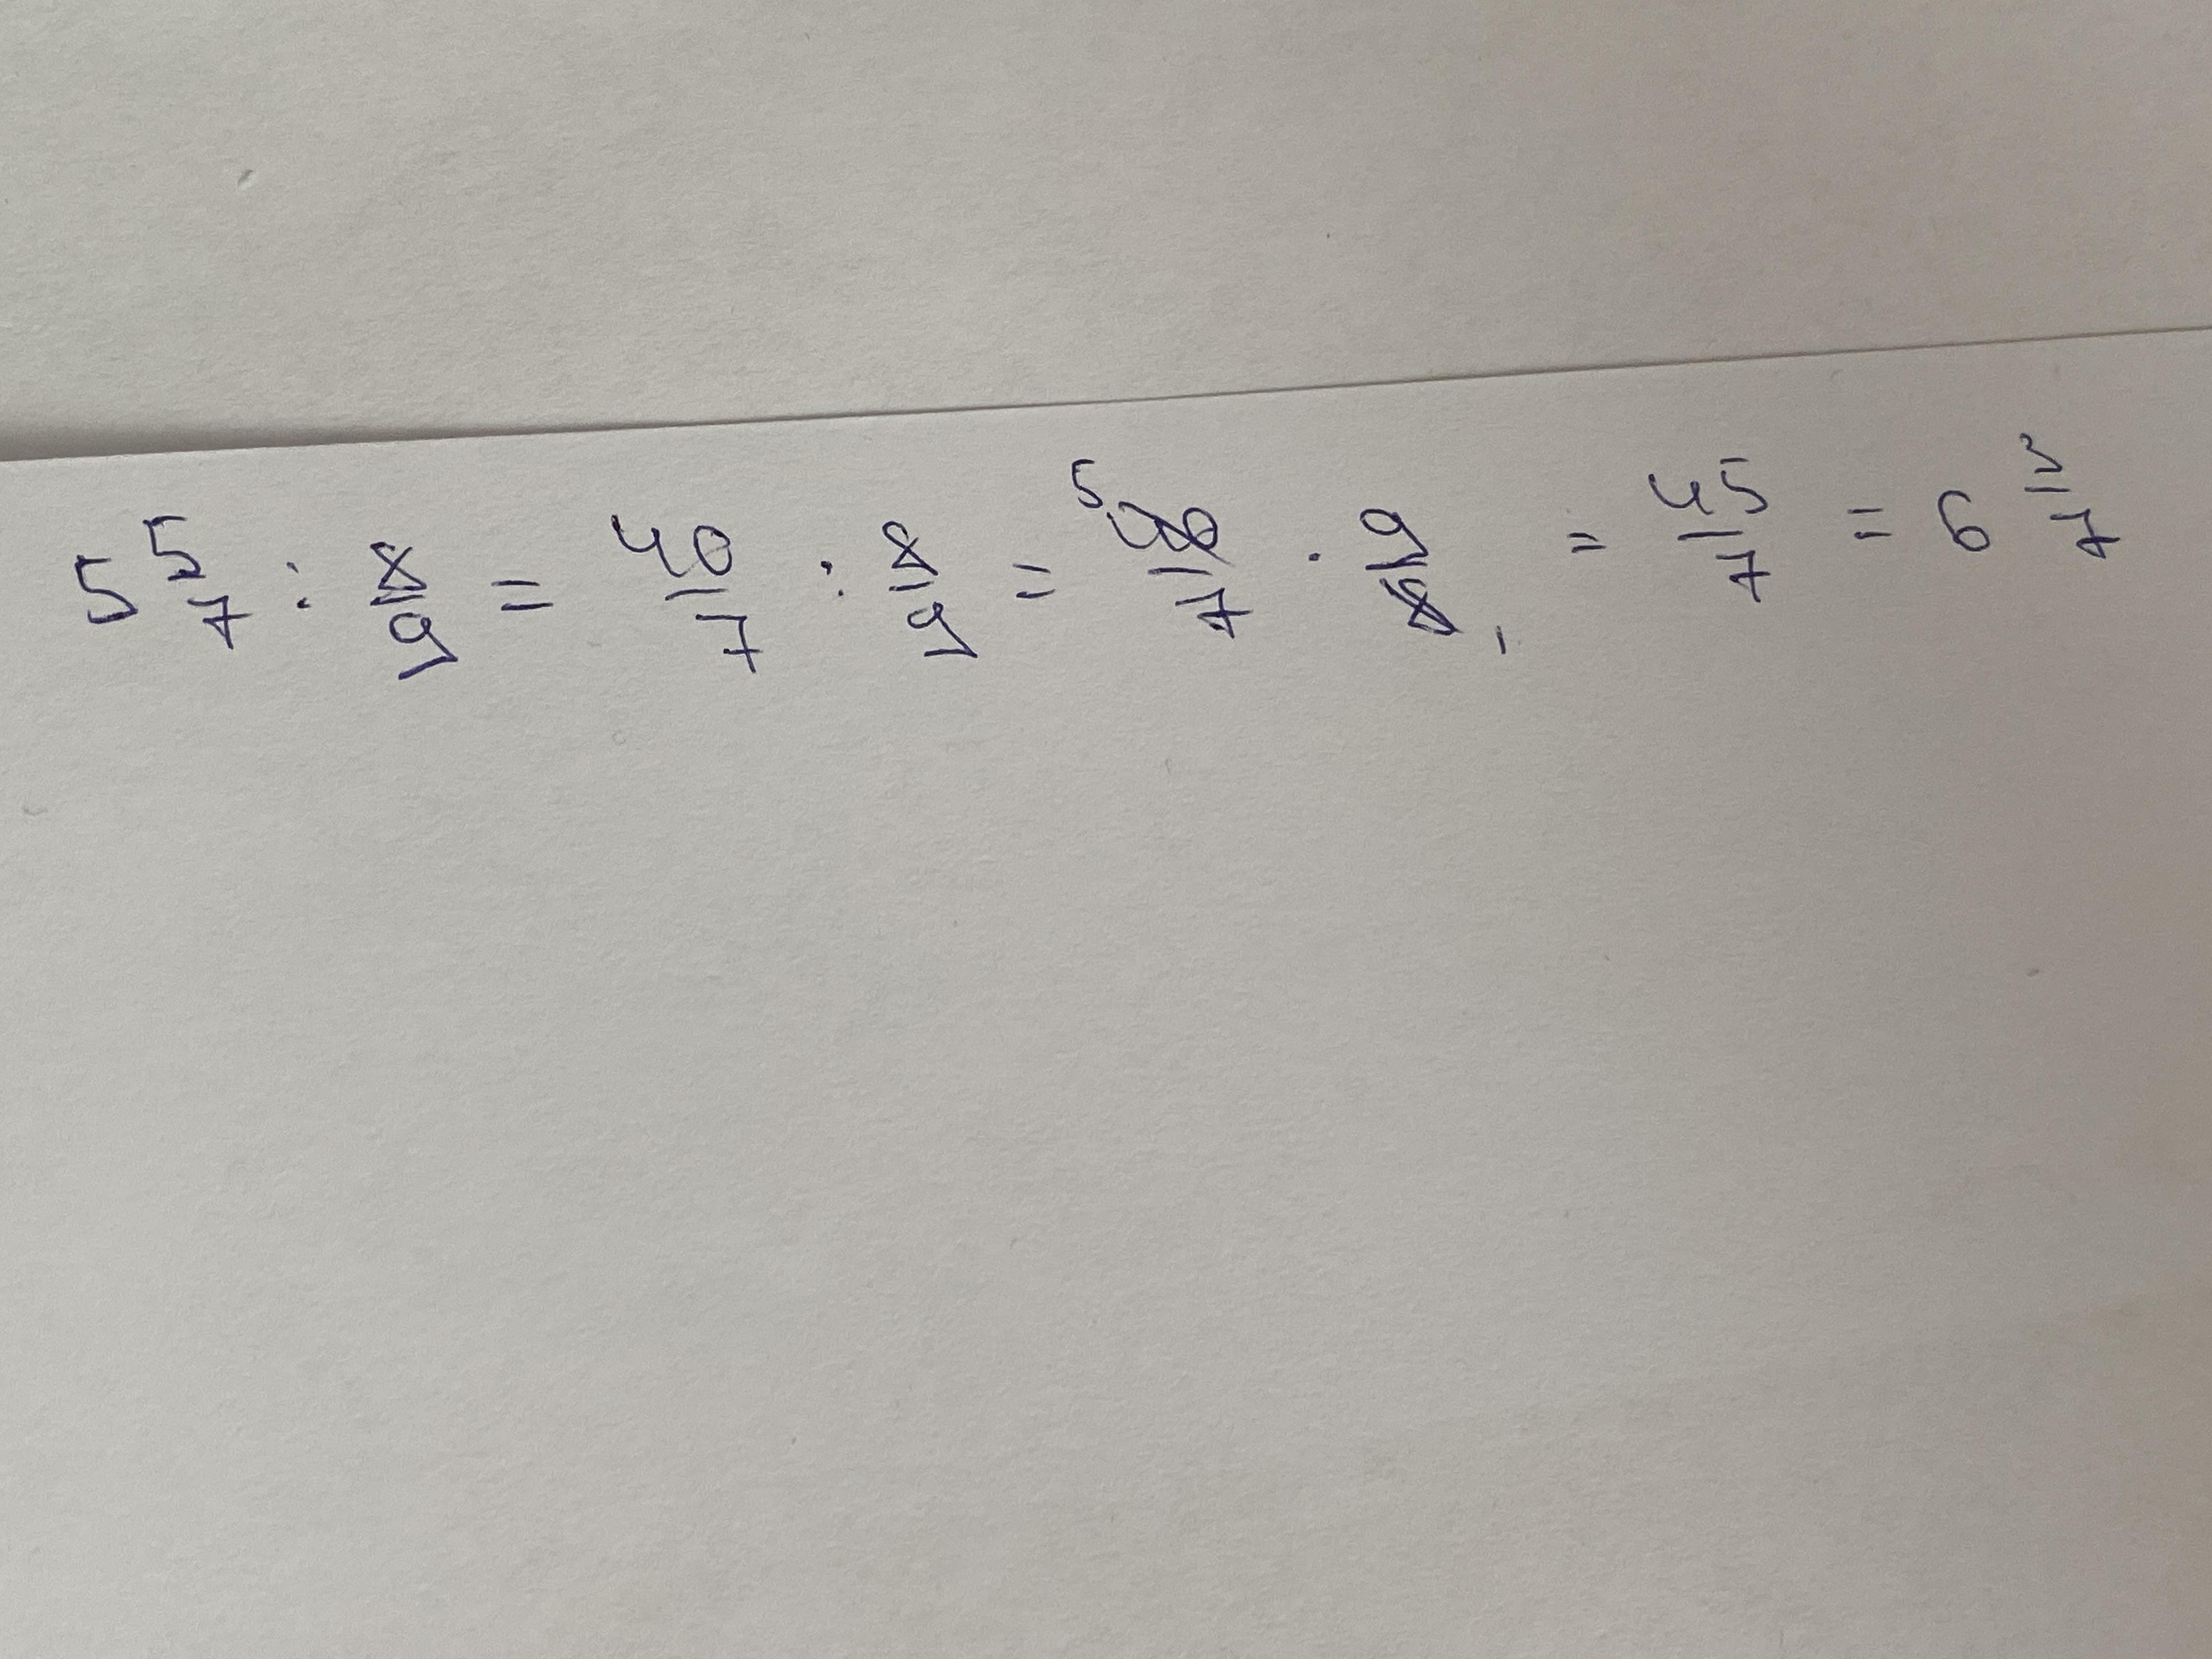 5 5/7 : 8/9 = 40/7 : 8/9 = 5 40/7 · 9/8 1 = 45/7 = 6 3/7